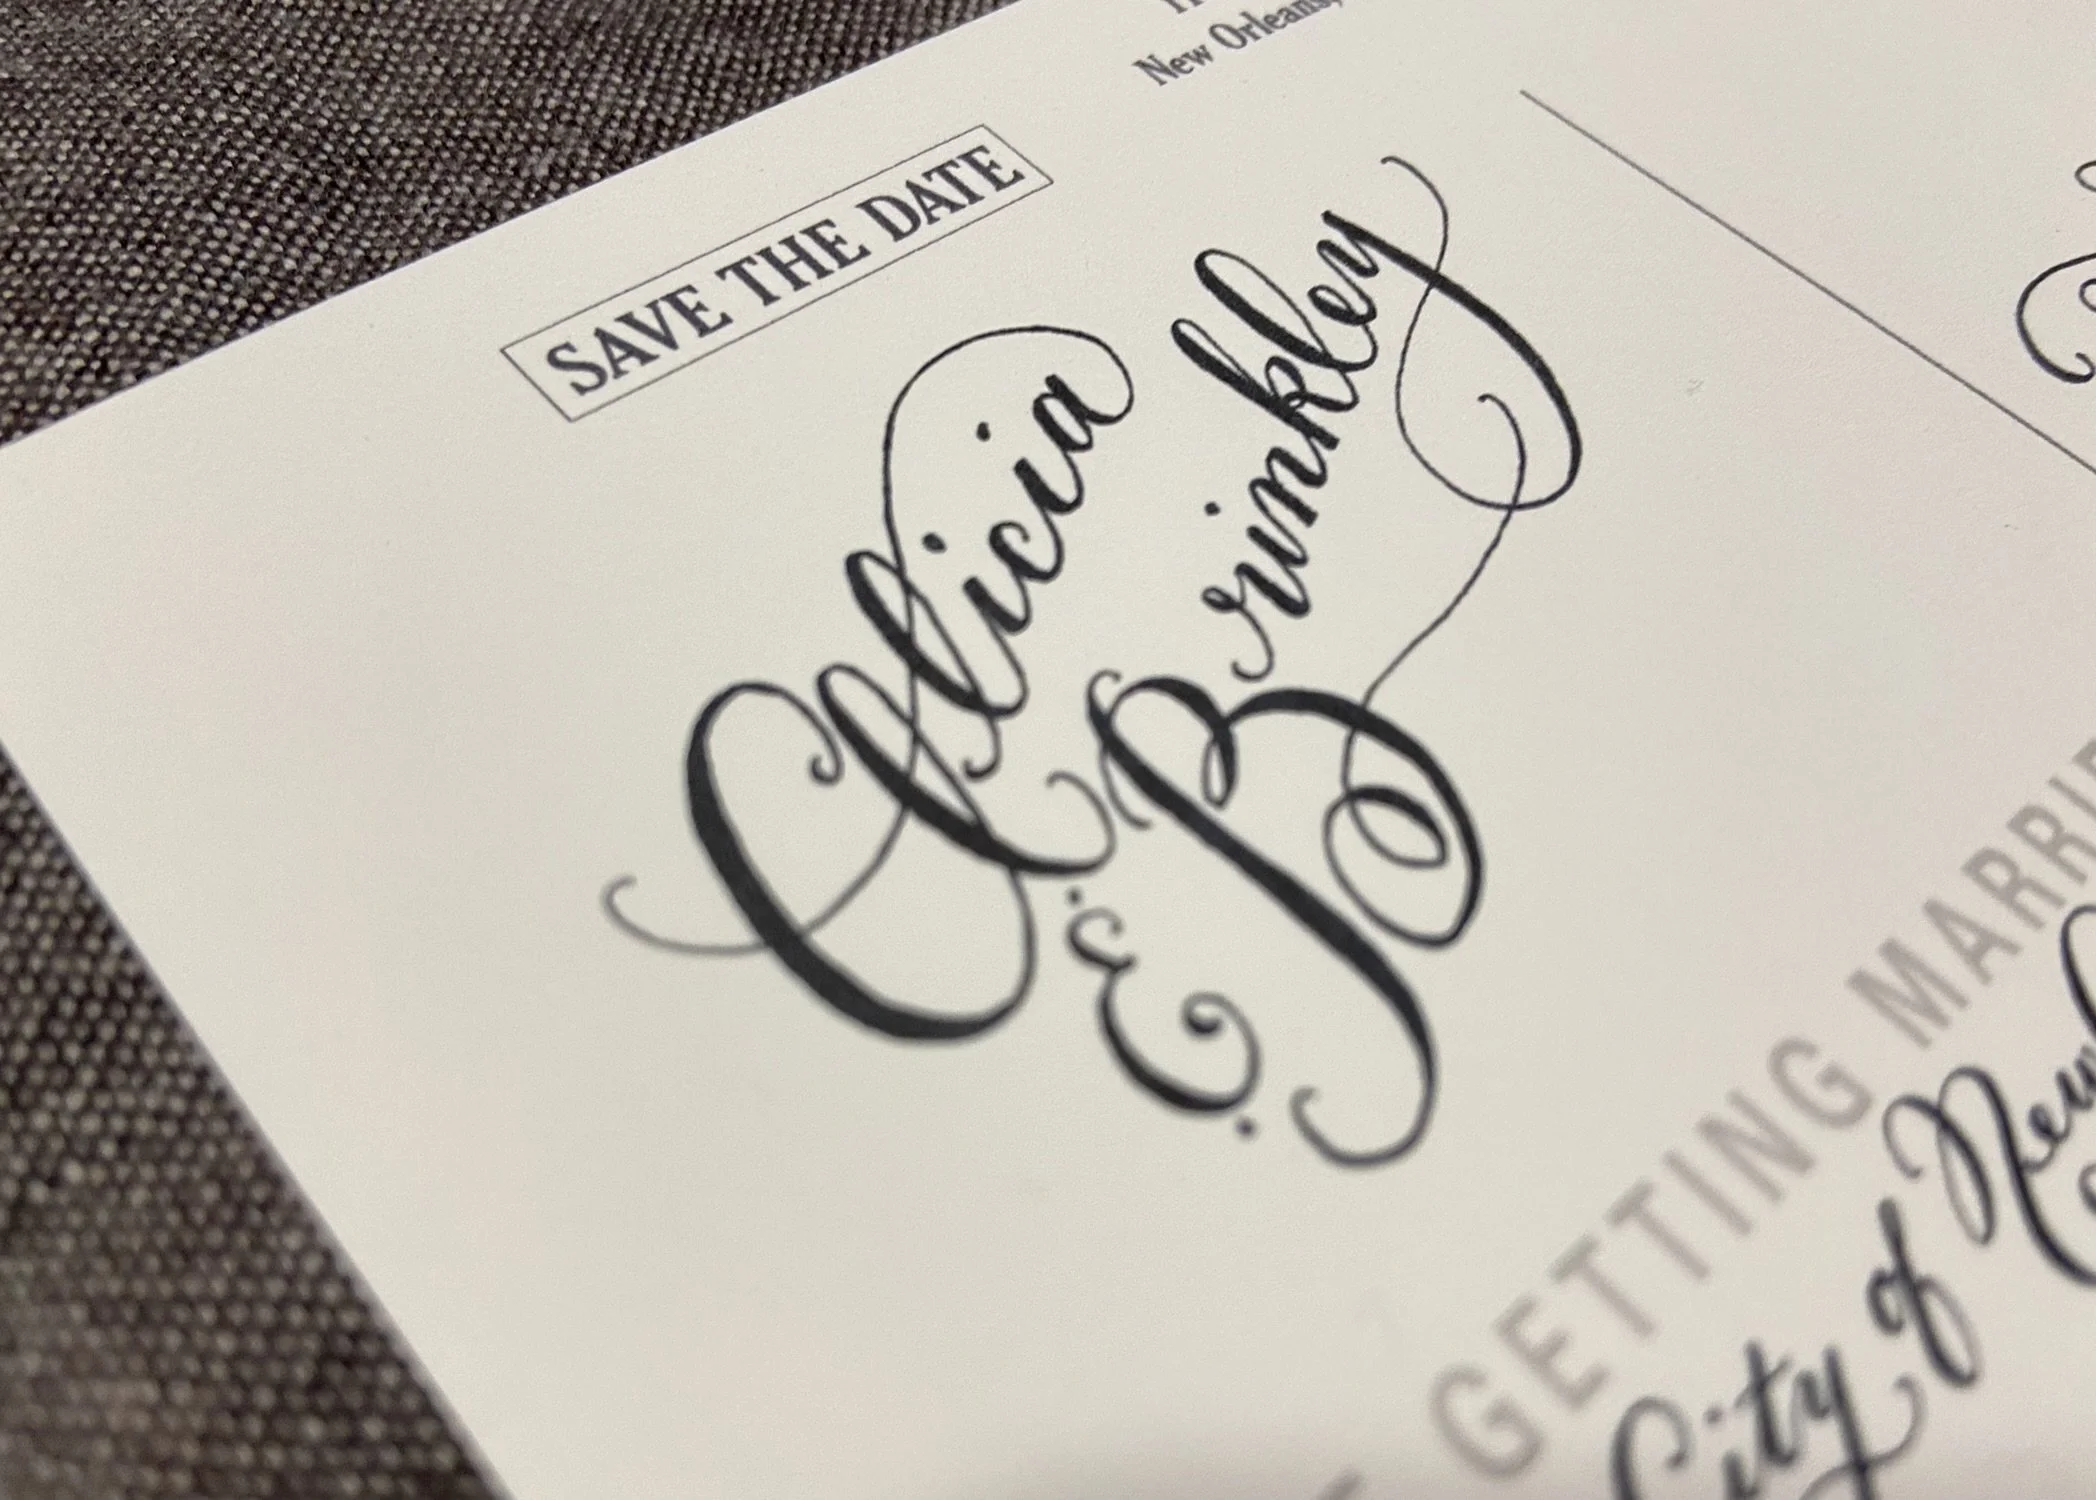 New Orleans,
SAVE THE DATE
Alicia
&
Brinkley
GETTING
City of